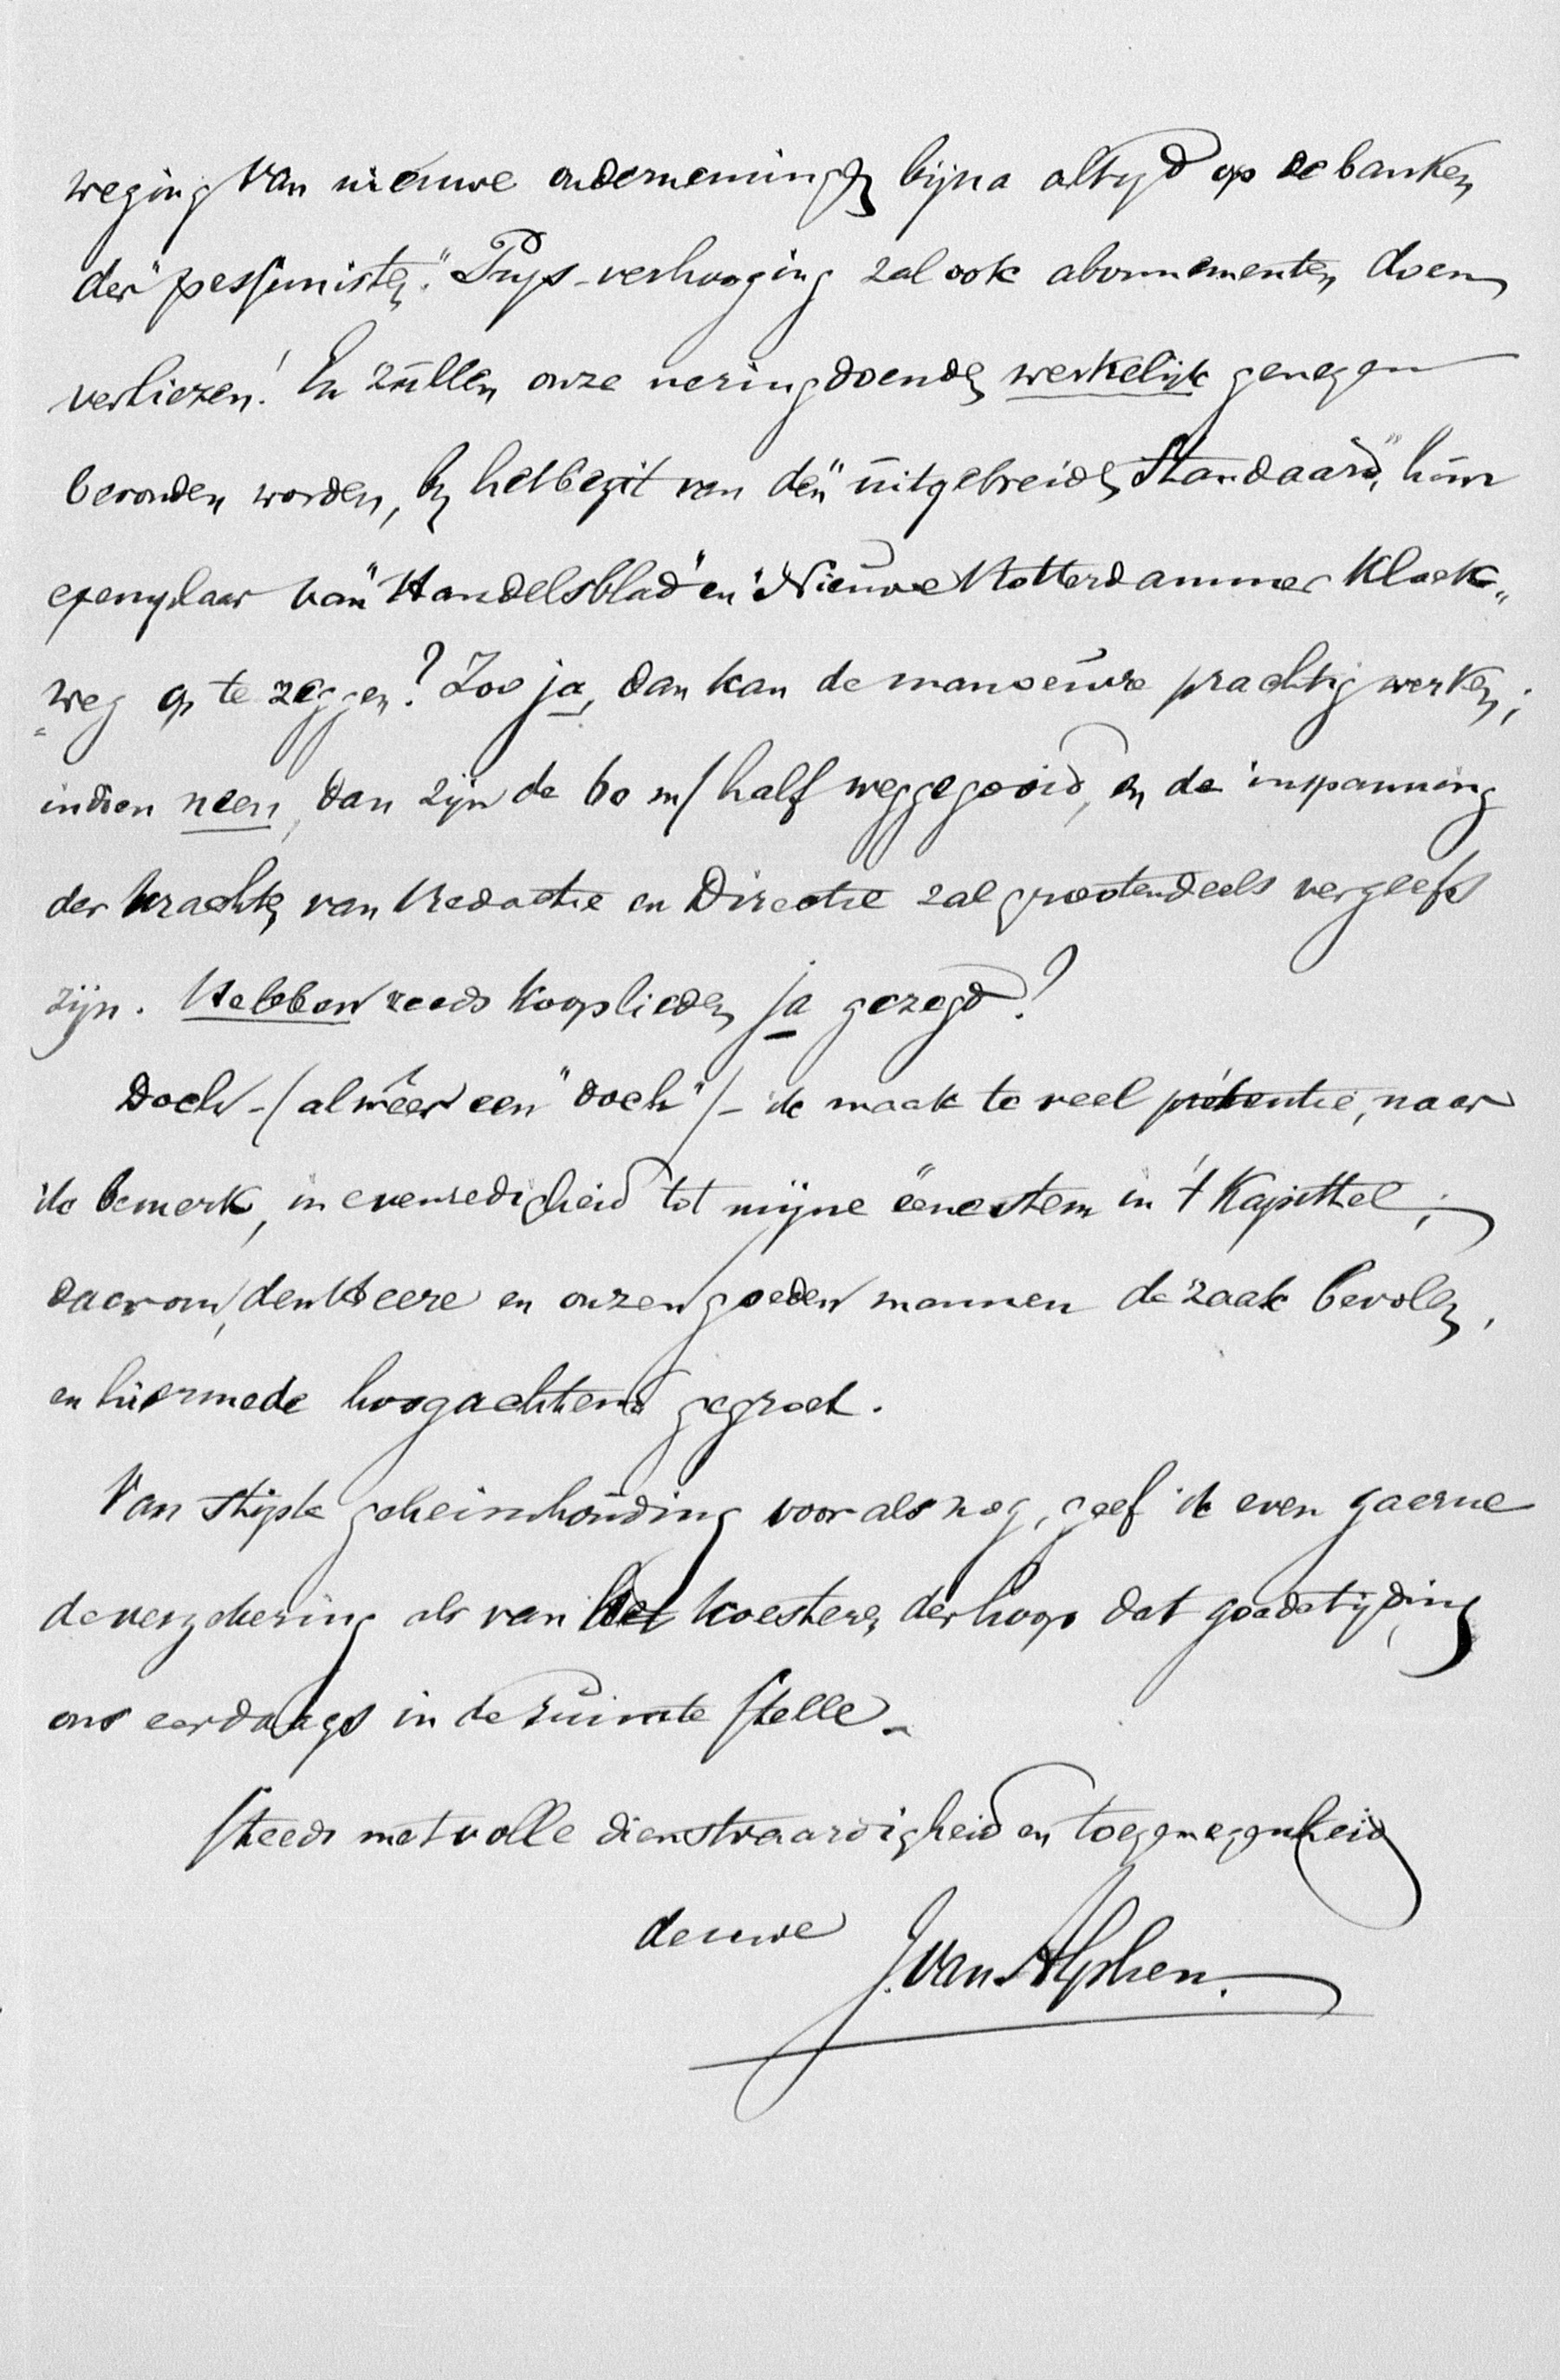 weging van nieuwe ondernemingen bijna altyd op de banken
der "pessimisten." Prys-verhooging zal ook abonnementen doen
verliezen! En zullen onze neringdoenden werkelijk genegen
bevonden worden, by het bezit van den "uitgebreiden Standaard," hun
exemplaar van "Handelsblad" en "Nieuwe Rotterdammer kloek„
„weg op te zeggen? Zoo ja, dan kan de manoeuvre prachtig werken;
indien neen, dan zijn de 60 m/ half weggegooid, en de inspanning
der krachten van Redactie en Directie zal grootendeels vergeefs
zijn. Hebben reeds kooplieden ja gezegd?
Doch - (alwêer een "doch") - ik maak te veel pretentie, naar
ik bemerk, in evenredigheid tot mijne ééne stem in 't Kapittel;
daarom, den Heere en onzen goeden mannen de zaak bevolen,
en hiermede hoogachtend gegroet.
Van stipte geheimhouding voor als nog, geef ik even gaerne
de verzekering als van het koesteren der hoop dat goede tijding
ons eerdaags in de ruimte stelle.
Steeds met volle dienstvaardigheid en toegenegenheid
de uwe
J. van Alphen.